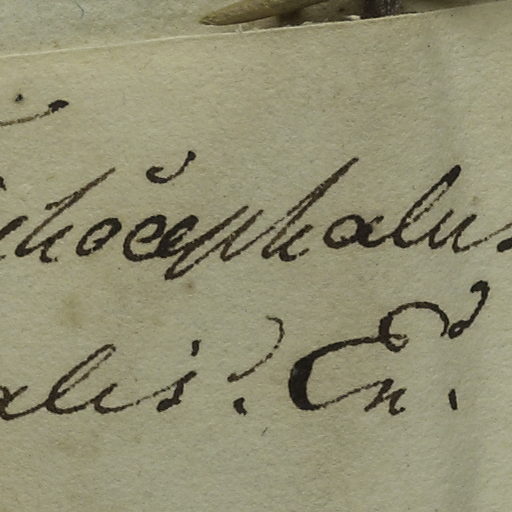 choĕephalus
alis. En.